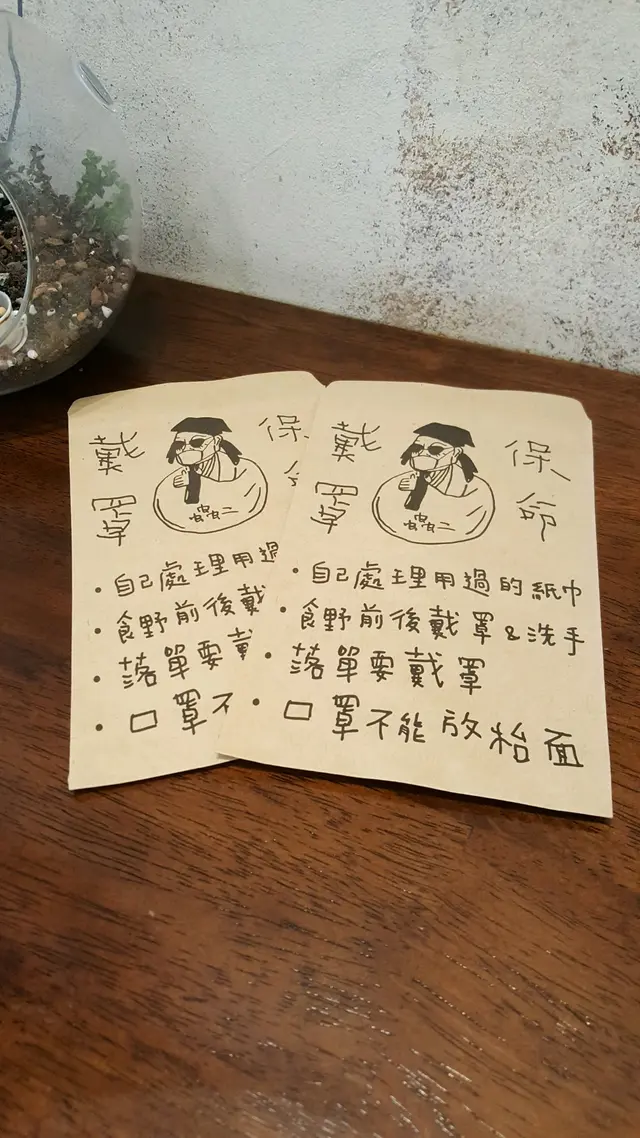 戴罩
保
・自己處理用過
・食野前後戴
・落單要戴
・口罩不
戴罩
保命
・自己處理用過的紙巾
・食野前後戴罩&洗手
・落單要戴罩
・口罩不能放枱面